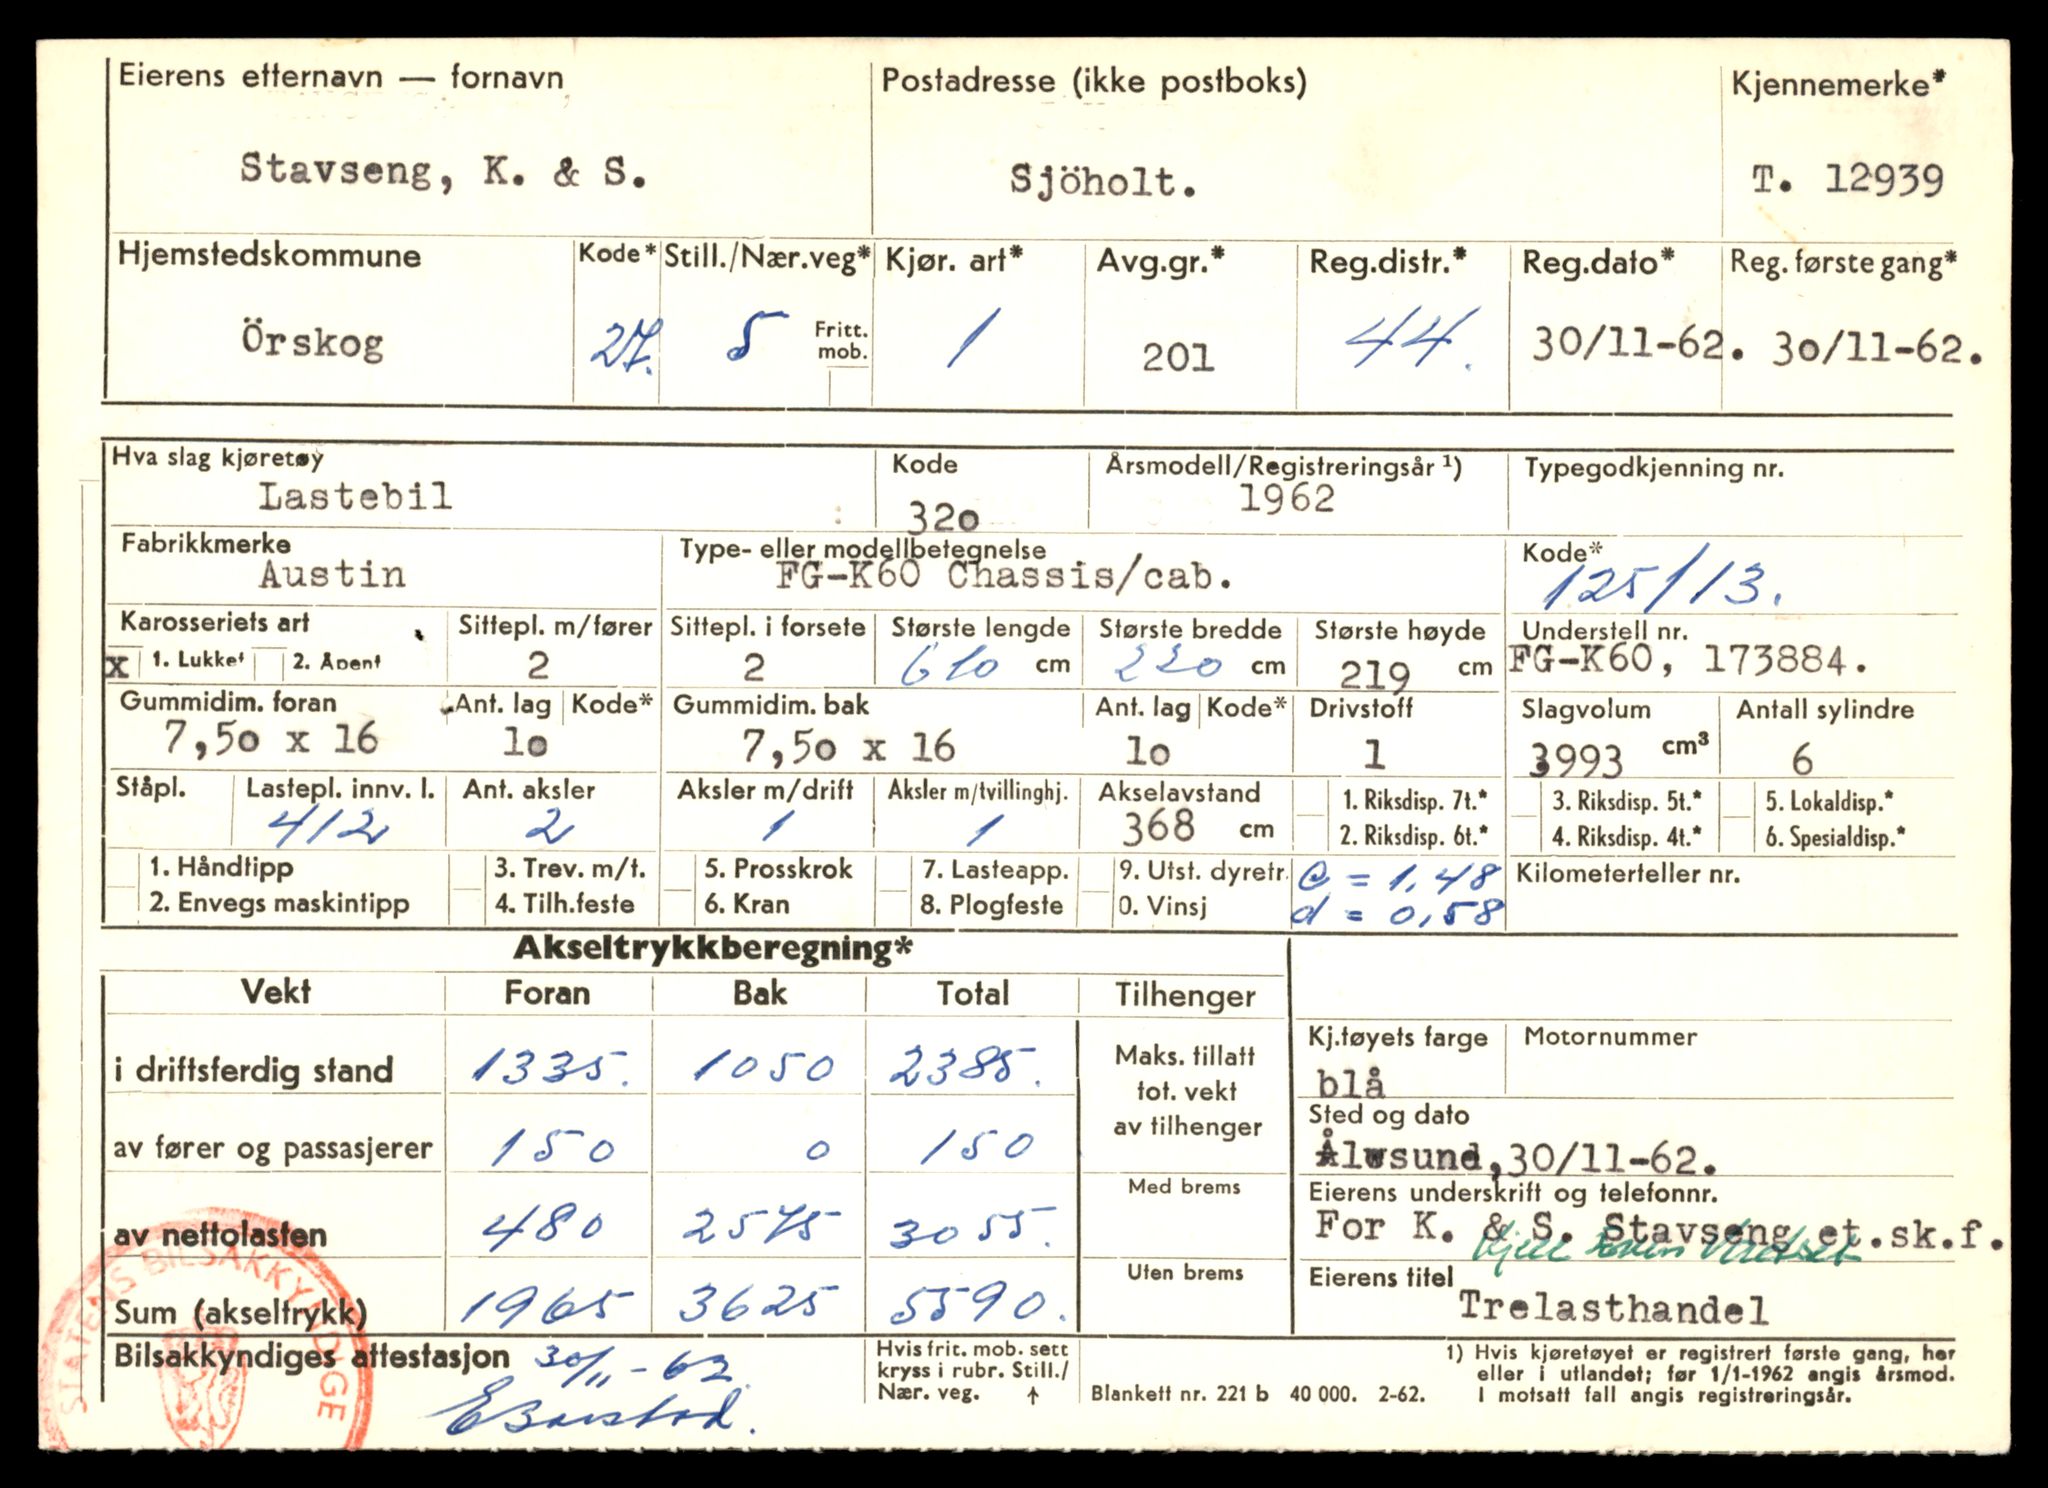 Eierens etternavn — fornavn Postadresse (ikke postboks) Kjennemerke*
Stavseng, K. & S. Sjöholt. T. 12939
Hjemstedskommune Kode* Still./Nær.veg* Kjør. art* Avg.gr.* Reg.distr.* Reg.dato* Reg. første gang*
Örskog 27. 5 Fritt. mob. 1 201 44. 30/11-62. 30/11-62.
Hva slag kjøretøy Kode Årsmodell/Registreringsår ¹) Typegodkjenning nr.
Lastebil 320 1962
Fabrikkmerke Type- eller modellbetegnelse Kode*
Austin FG-K60 Chassis/cab. 125/13.
Karosseriets art Sittepl. m/fører Sittepl. i forsete Største lengde Største bredde Største høyde Understell nr.
x 1. Lukket 2. Åpent 2 2 610 cm 220 cm 219 cm FG-K60, 173884.
Gummidim. foran Ant. lag Kode* Gummidim. bak Ant. lag Kode* Drivstoff Slagvolum Antall sylindre
7,50 x 16 10 7,50 x 16 10 1 3993 cm³ 6
Ståpl. Lastepl. innv. l. Ant. aksler Aksler m/drift Aksler m/tvillinghj. Akselavstand 1. Riksdisp. 7t.* 3. Riksdisp. 5t.* 5. Lokaldisp.*
412 2 1 1 368 cm 2. Riksdisp. 6t.* 4. Riksdisp. 4t.* 6. Spesialdisp.*
1. Håndtipp 3. Trev. m/t. 5. Prosskrok 7. Lasteapp. 9. Utst. dyretr. = 1,48 Kilometerteller nr.
2. Envegs maskintipp 4. Tilh.feste 6. Kran 8. Plogfeste 0. Vinsj d = 0,58
Akseltrykkberegning*
Vekt Foran Bak Total Tilhenger
i driftsferdig stand 1335. 1050 2385. Maks. tillatt tot. vekt av tilhenger
Kj.tøyets farge Motornummer
blå
Sted og dato
av fører og passasjerer 150 0 150
Ålesund, 30/11-62.
Med brems
Eierens underskrift og telefonnr.
av nettolasten 480 2575 3055.
For K. & S. Stavseng et.sk.f.
Uten brems
Eierens titel
Sum (akseltrykk) 1965 3625 5590.
Trelasthandel
Bilsakkyndiges attestasjon 30/11-62
Hvis frit. mob. sett
kryss i rubr. Still./
Nær. veg. ↑
Blankett nr. 221 b 40 000. 2-62.
1) Hvis kjøretøyet er registrert første gang, her
eller i utlandet; før 1/1-1962 angis årsmod.
I motsatt fall angis registreringsår.
STATENS BILSAKKYNDIGE